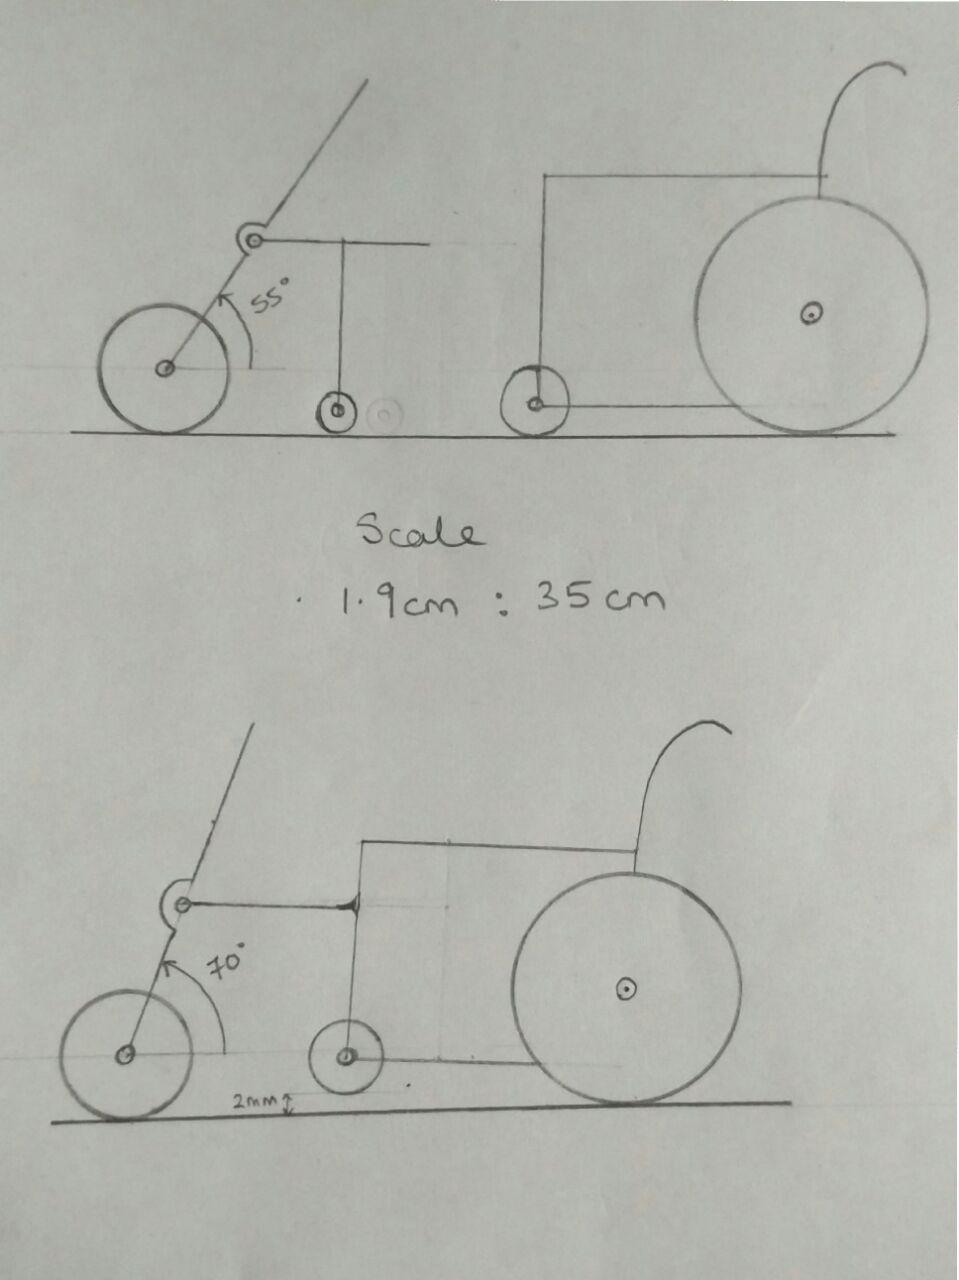 55°
Scale
1.9cm : 35cm
70°
2mm